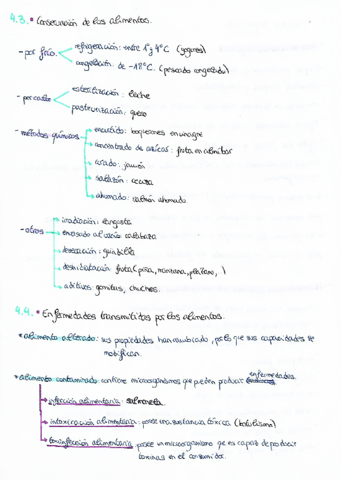 4.3. • Conservación de los alimentos.
- por frío.
refrigeración: entre 1º y 4ºC (yogures)
congelación: de -18ºC. (pescado congelado)
- por calor
esterilización: leche
pasteurización: queso
- métodos químicos
encurtido: boquerones en vinagre
concentrado de azúcar: fruta en almíbar
curado: jamón
salazón: cecina
ahumado: salmón ahumado
- otros
irradiación: langosta
envasado al vacío: calabaza
desecación: guindilla
deshidratación: fruta (pera, manzana, plátano, )
aditivos: gomitas, chuches.
4.4. • Enfermedades transmitidas por los alimentos.
• alimento alterado: sus propiedades han cambiado, por lo que sus capacidades se
modifican.
enfermedades.
• alimento contaminado: contiene microorganismos que pueden producir
infección alimentaria: salmonela
intoxicación alimentaria: posee una sustancia tóxica (botulismo)
toxiinfección alimentaria: posee un microorganismo que es capaz de producir
toxinas en el consumidor.